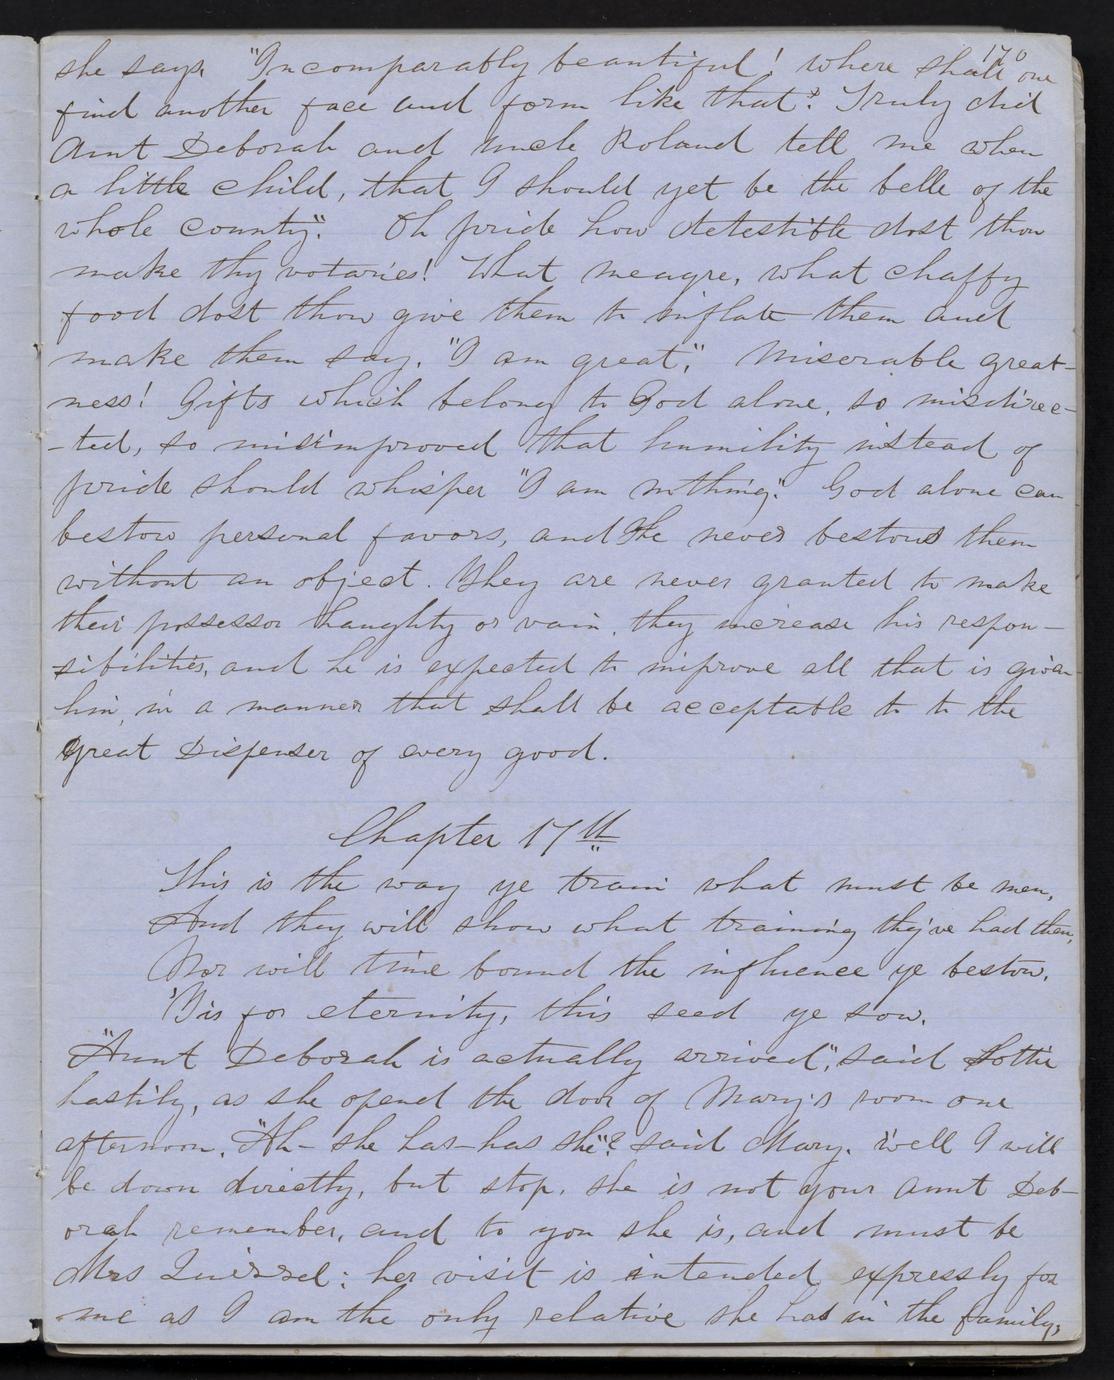 170
she says, "Incomparably beautiful! where shall one
find another face and form like that? Truly did
Aunt Deborah and Uncle Roland tell me when
a little child, that I should yet be the belle of the
whole county." Oh pride how detestible dost thou
make thy votaries! What meagre, what chaffy
food dost thou give them to inflate them and
make them say, "I am great," Miserable great-
ness! Gifts which belong to God alone, so misdirec-
-ted, so misimproved that humility instead of
pride should whisper "I am nothing." God alone can
bestow personal favors, and He never bestows them
without an object. They are never granted to make
their possessor haughty or vain, they increase his respon-
sibilities, and he is expected to improve all that is given
him, in a manner that shall be acceptable to to the
great Dispenser of every good.
Chapter 17th
This is the way ye train what must be men,
And they will show what training they've had then,
Nor will time bound the influence ye bestow,
'Tis for eternity, this seed ye sow.
"Aunt Deborah is actually arrived," said Lottie
hastily, as she opend the door of Mary's room one
afternoon. "Ah- she has-has she"? said Mary. well I will
be down directly, but stop, she is not your Aunt Deb-
orah remember, and to you she is, and must be
Mrs Quirrel: her visit is intended expressly for
me as I am the only relative she has in the family,